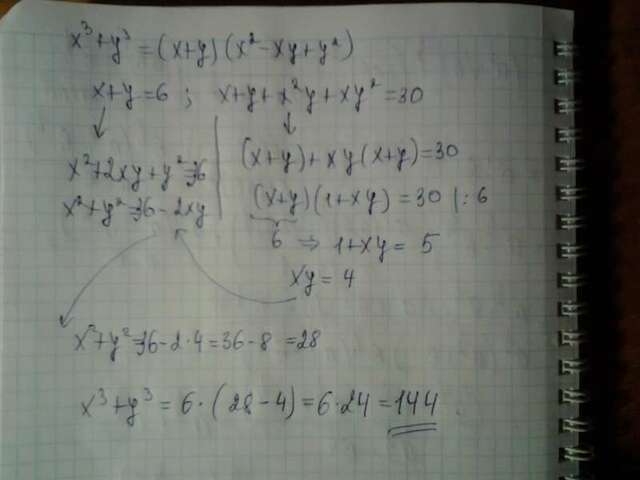 x³+y³=(x+y)(x²-xy+y²)
x+y=6 ; x+y+x²y+xy²=30
x²+2xy+y²=36
x²+y²=36-2xy
(x+y)+xy(x+y)=30
(x+y)(1+xy)=30 |:6
6 ⇒ 1+xy=5
xy=4
x²+y²=36-2·4=36-8=28
x³+y³=6·(28-4)=6·24=144